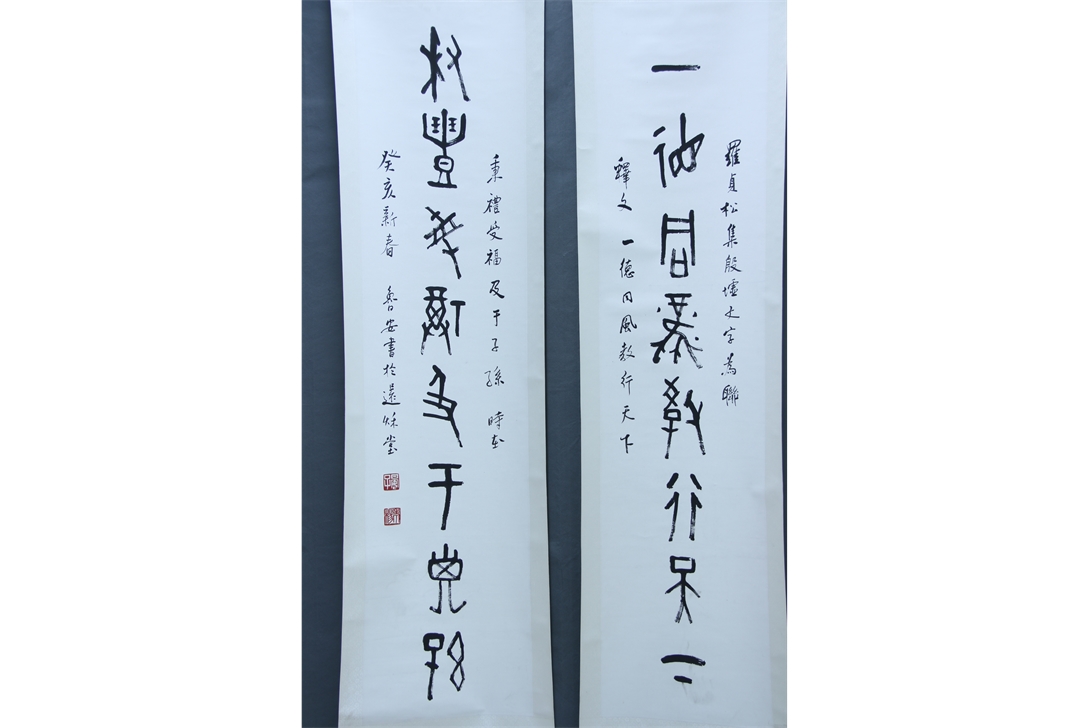 羅貞松集殷墟文字為聯
一德同風教行天下
釋文 一德同風教行天下
秉禮受福及于子孫 時在
秉禮受福及于子孫
癸亥新春 魯安書於堂